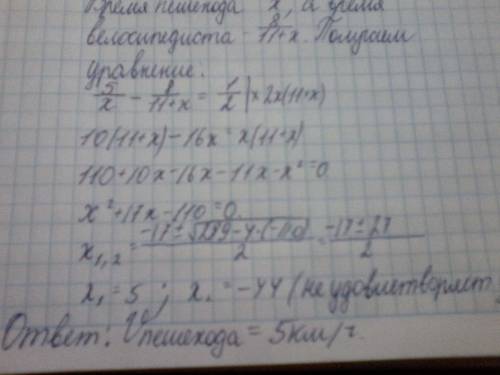 Время пешехода x, а время
велосипедиста - 8/11+x. Получаем
уравнение.
5/x - 8/11+x = 1/2 | × 2x(11+x)
10(11+x)-16x=x(11+x)
110+10x-16x-11x-x²=0
x²+17x-110=0
x₁,₂ = -17±√289-4·(-110)/2 = -17±27/2
x₁=5; x =-44 (не удовлетворяет
Ответ: Vпешехода = 5км/ч.